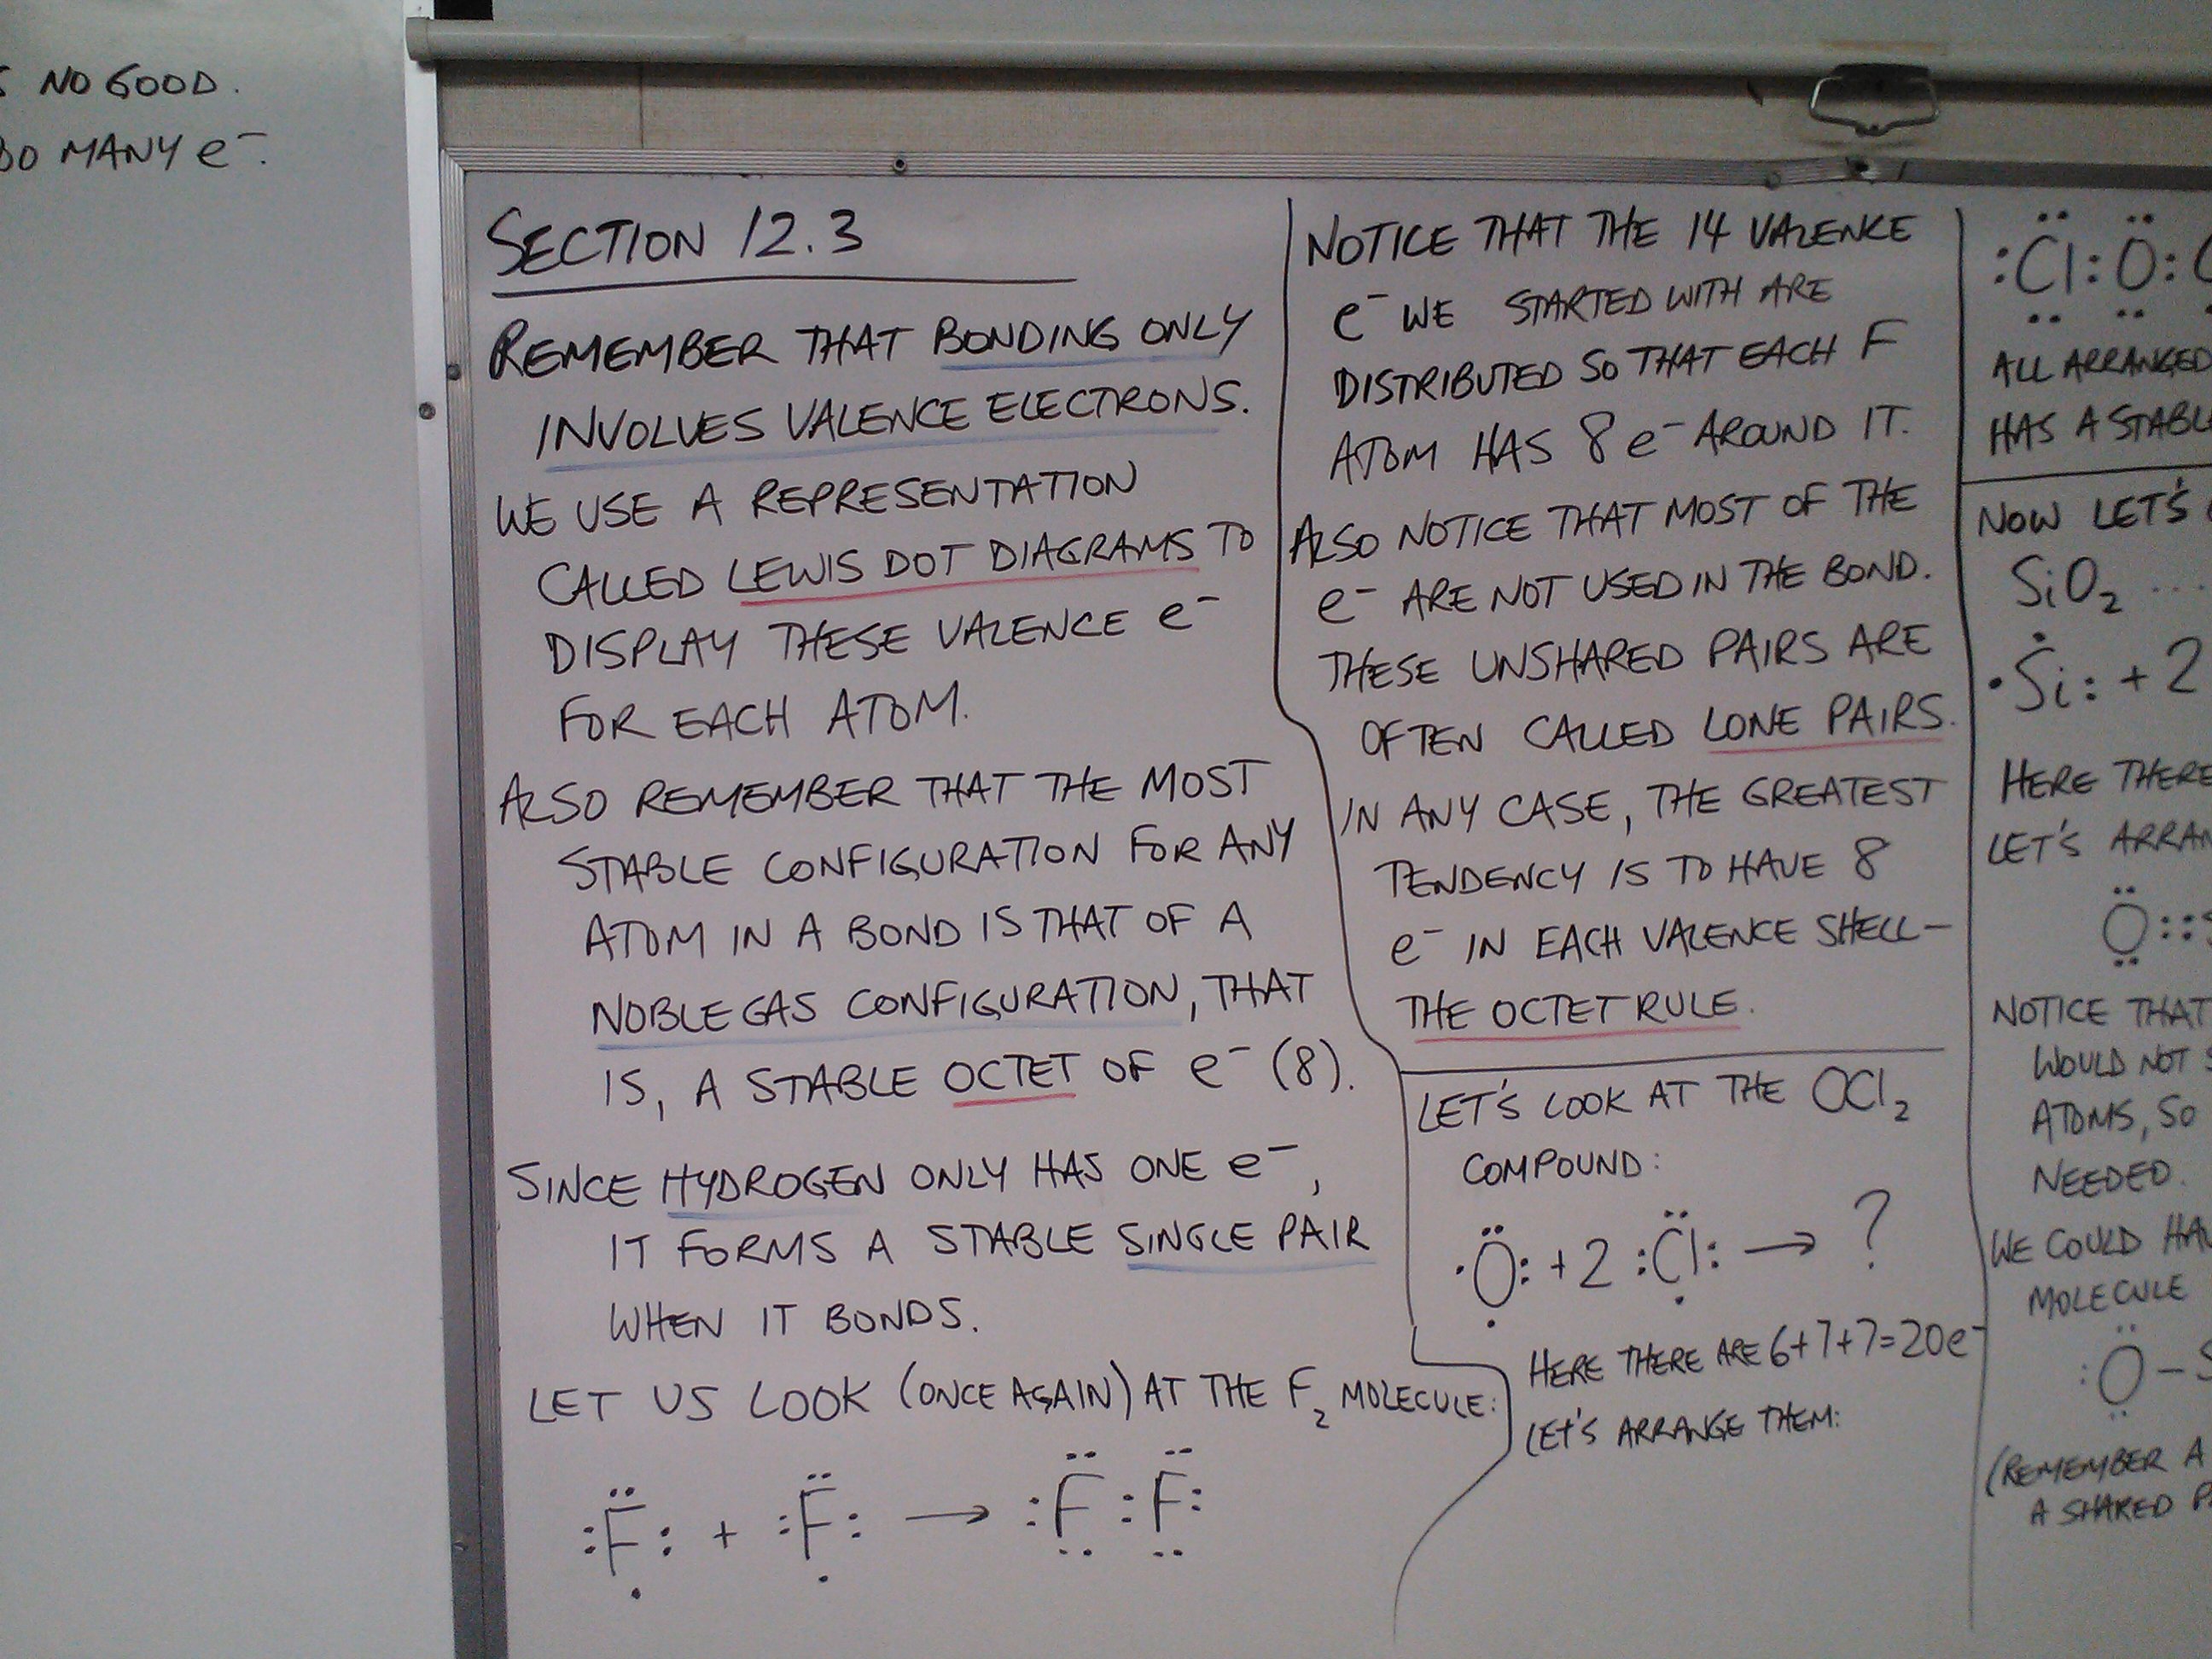 NO GOOD.
MANY e⁻.
SECTION 12.3
REMEMBER THAT BONDING ONLY
INVOLVES VALENCE ELECTRONS.
WE USE A REPRESENTATION
CALLED LEWIS DOT DIAGRAMS TO
DISPLAY THESE VALENCE e⁻
FOR EACH ATOM.
ALSO REMEMBER THAT THE MOST
STABLE CONFIGURATION FOR ANY
ATOM IN A BOND IS THAT OF A
NOBLE GAS CONFIGURATION, THAT
IS, A STABLE OCTET OF e⁻ (8).
SINCE HYDROGEN ONLY HAS ONE e⁻,
IT FORMS A STABLE SINGLE PAIR
WHEN IT BONDS.
LET US LOOK (ONCE AGAIN) AT THE F₂ MOLECULE:
:F: + :F: → :F:F:
NOTICE THAT THE 14 VALENCE
e⁻ WE STARTED WITH ARE
DISTRIBUTED SO THAT EACH F
ATOM HAS 8 e⁻ AROUND IT.
ALSO NOTICE THAT MOST OF THE
e⁻ ARE NOT USED IN THE BOND.
THESE UNSHARED PAIRS ARE
OFTEN CALLED LONE PAIRS.
IN ANY CASE, THE GREATEST
TENDENCY IS TO HAVE 8
e⁻ IN EACH VALENCE SHELL—
THE OCTET RULE.
LET'S LOOK AT THE OCl₂
COMPOUND:
·O: + 2 :Cl: → ?
HERE THERE ARE 6+7+7=20e⁻
LET'S ARRANGE THEM:
:Cl:O:
ALL ARRANGED
HAS A STABLE
NOW LET'S
SiO₂ ...
·Si: + 2
HERE THERE
LET'S
O::
NOTICE THAT
WOULD NOT
ATOMS, SO
NEEDED.
WE COULD
MOLECULE
:O–
(REMEMBER A
A SHARED